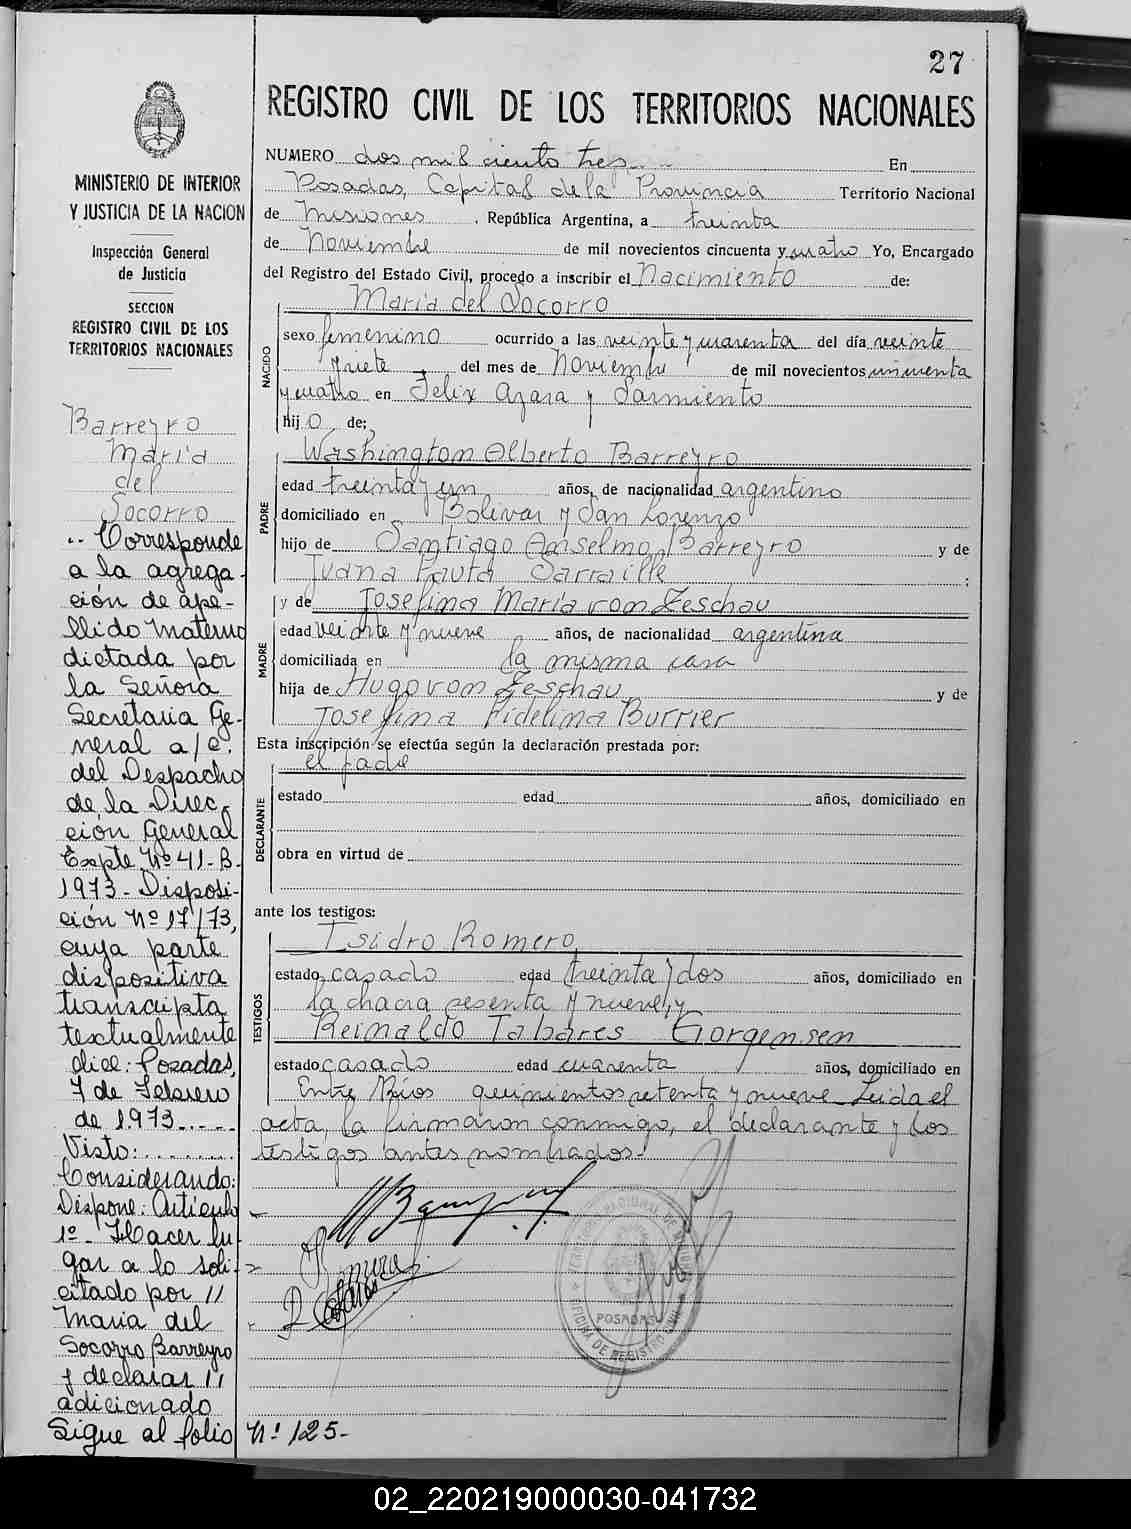 27
REGISTRO CIVIL DE LOS TERRITORIOS NACIONALES
NUMERO dos mil ciento tres En
Posadas, Capital de la Provincia Territorio Nacional
de Misiones, República Argentina, a treinta
de Noviembre de mil novecientos cincuenta y cuatro Yo, Encargado
del Registro del Estado Civil, procedo a inscribir el Nacimiento de:
María del Socorro
NACIDO
sexo femenino ocurrido a las veinte y cuarenta del día veinte
y siete del mes de Noviembre de mil novecientos cincuenta
y cuatro en Felix Azara y Sarmiento
hijo de:
PADRE
Washington Alberto Barreyro
edad treinta y un años, de nacionalidad argentino
domiciliado en Bolivar y San Lorenzo
hijo de Santiago Anselmo Barreyro y de
Juana Pauta Sarraille;
MADRE
y de Josefina María von Zeschau
edad veinte y nueve años, de nacionalidad argentina
domiciliada en la misma casa
hija de Hugo von Zeschau y de
Josefina Fidelina Burrier
Esta inscripción se efectúa según la declaración prestada por:
el padre
DECLARANTE
estado edad años, domiciliado en
obra en virtud de
ante los testigos:
TESTIGOS
Isidro Romero
estado casado edad treinta y dos años, domiciliado en
la chacra sesenta y nueve, y
Reinaldo Tabares Gorgensen
estado casado edad cuarenta años, domiciliado en
Entre Ríos quinientos setenta y nueve Leida el
acta, la firmaron conmigo, el declarante y los
testigos antes nombrados.
POSADAS
OFICINA DE REGISTRO CIVIL
MINISTERIO DE INTERIOR
Y JUSTICIA DE LA NACION
Inspección General
de Justicia
SECCION
REGISTRO CIVIL DE LOS
TERRITORIOS NACIONALES
Barreyro
María
del
Socorro
.. Corresponde
a la agrega-
ción de ape-
llido materno
dictada por
la Señora
Secretaria Ge-
neral a/c.
del Despacho
de la Direc-
ción General
Expte Nº 41-B-
1973- Disposi-
ción Nº 17/73,
cuya parte
dispositiva
transcripta
textualmente
dice: Posadas,
7 de Febrero
de 1973.....
Visto:.........
Considerando:
Dispone: Artículo
1º- Hacer lu-
gar a lo soli-
citado por //
Maria del
Socorro Barreyro
y declarar //
adicionado
Sigue al folio Nº 125-
02_220219000030-041732